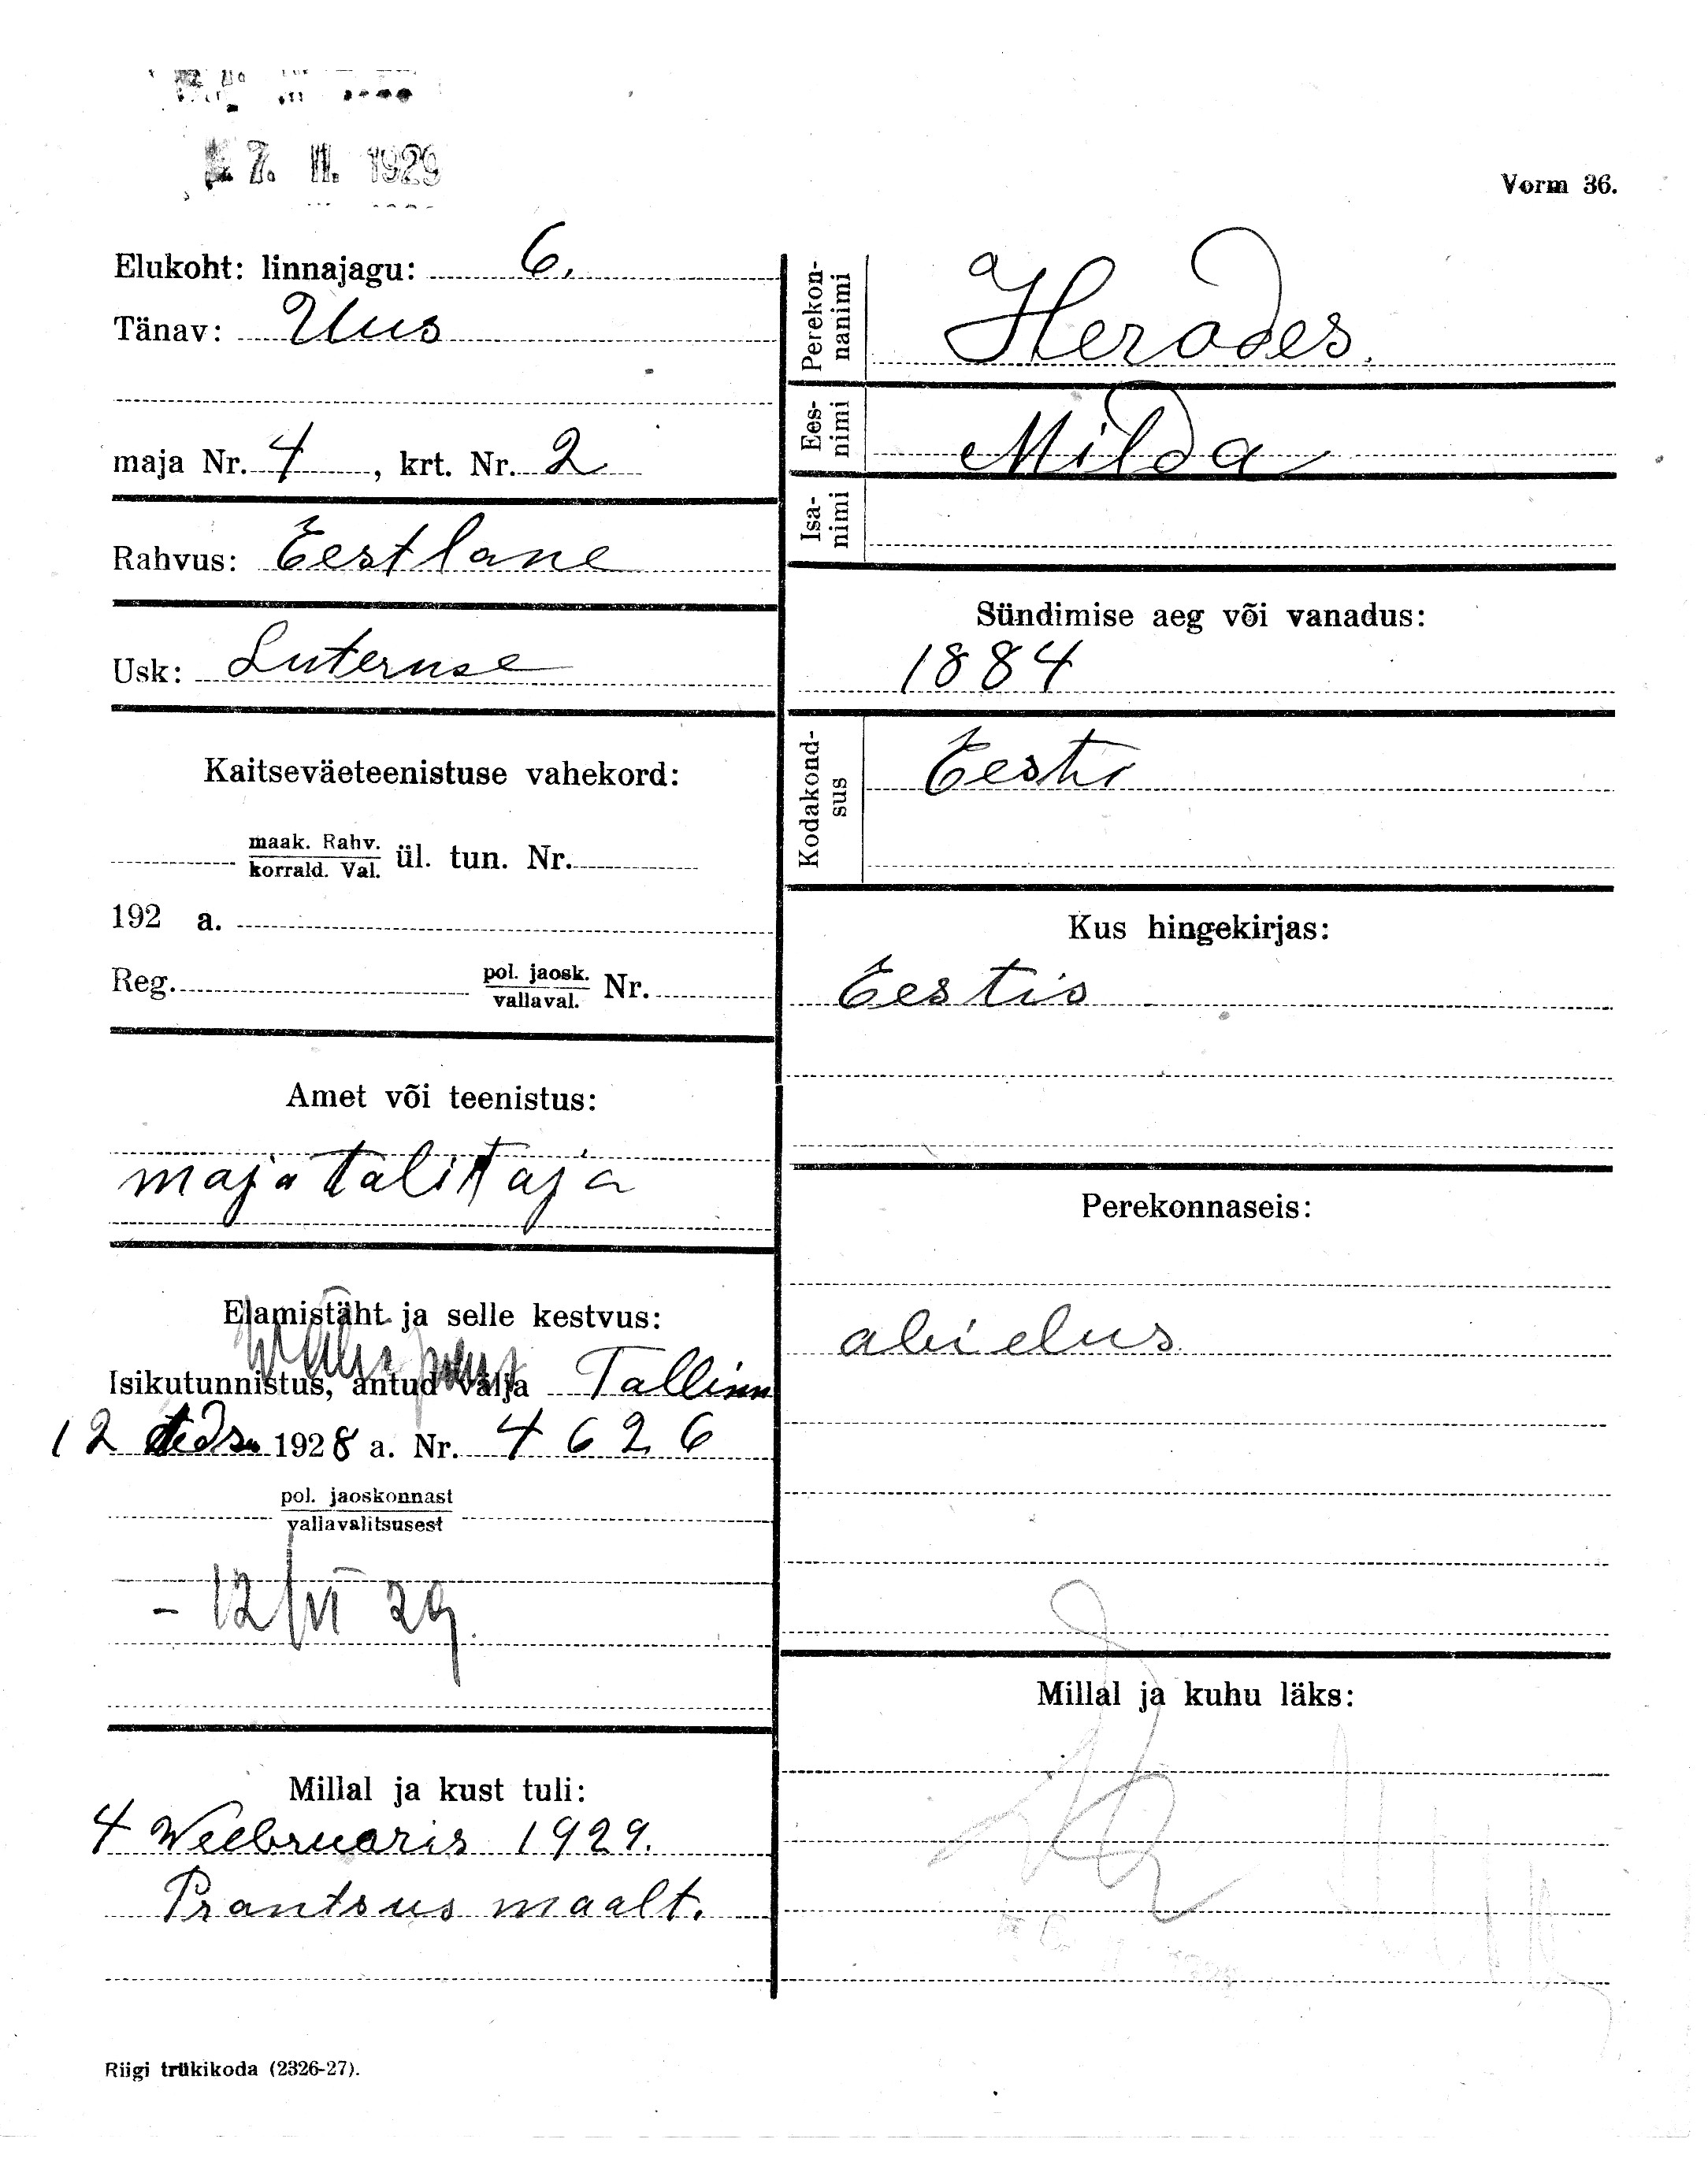 7. II. 1929
Vorm 36.
Elukoht: linnajagu: 6.
Tänav: Uus
maja Nr. 4, krt. Nr. 2
Rahvus: Eestlane
Usk: Luteruse
Kaitseväeteenistuse vahekord:
maak. Rahv.
korrald. Val. ül. tun. Nr.
192 a.
Reg. pol. jaosk.
vallaval. Nr.
Amet või teenistus:
majatalitaja
Elamistäht ja selle kestvus:
Isikutunnistus, antud välja Tallinn
12 1928 a. Nr. 4626
pol. jaoskonnast
vallavalitsusest
- 12/VI 29.
Millal ja kust tuli:
4 Weebruaris 1929.
Prantsus maalt.
Perekon-
nanimi
Herodes.
Ees-
nimi
Milda
Isa-
nimi
Sündimise aeg või vanadus:
1884
Kodakond-
sus
Eesti
Kus hingekirjas:
Eestis
Perekonnaseis:
abielus
Millal ja kuhu läks:
Riigi trükikoda (2326-27).